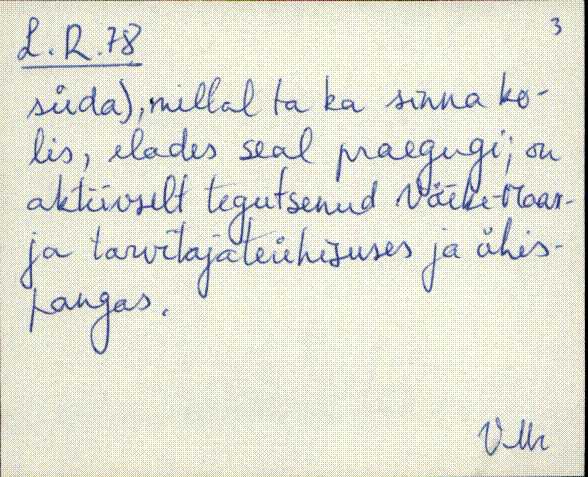 3
L.R.78
süda), millal ta ka sinna ko-
lis, elades seal praegugi; on
aktiivselt tegutsenud Väike-Maar-
ja tarvitajateühisuses ja ühis-
pangas.